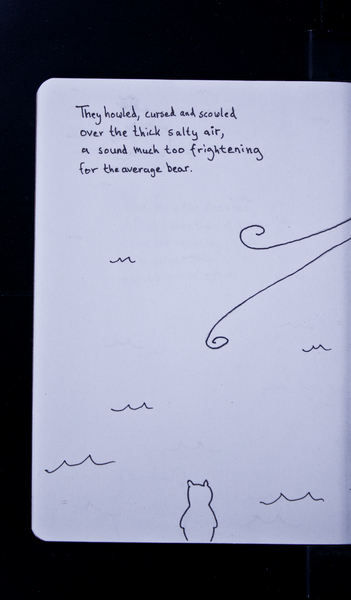 They howled, cursed and scowled
over the thick salty air,
a sound much too frightening
for the average bear.